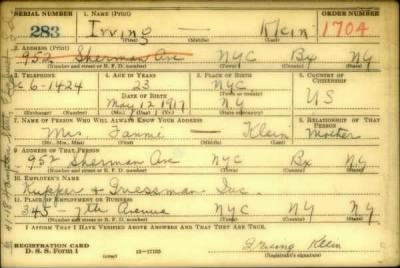 SERIAL NUMBER 1. NAME (Print) ORDER NUMBER
283 Irving — Klein 1704
(First) (Middle) (Last)
2. ADDRESS (Print)
952 Sherman Ave NYC Bx NY
(Number and street or R. F. D. number) (Town) (County) (State)
3. TELEPHONE 4. AGE IN YEARS 5. PLACE OF BIRTH 6. COUNTRY OF CITIZENSHIP
6-1424 23 NYC
DATE OF BIRTH US
May 12 1917 NY
(Exchange) (Number) (Mo.) (Day) (Yr.) (State or country)
7. NAME OF PERSON WHO WILL ALWAYS KNOW YOUR ADDRESS 8. RELATIONSHIP OF THAT PERSON
Mrs. Fannie — Klein Mother
(Mr., Mrs., Miss) (First) (Middle) (Last)
9. ADDRESS OF THAT PERSON
952 Sherman Ave NYC Bx NY
(Number and street or R. F. D. number) (Town) (County) (State)
10. EMPLOYER'S NAME
Inc.
11. PLACE OF EMPLOYMENT OR BUSINESS
345 - 7th Avenue NYC NY NY
(Number and street or R. F. D. number) (Town) (County) (State)
I AFFIRM THAT I HAVE VERIFIED ABOVE ANSWERS AND THAT THEY ARE TRUE.
REGISTRATION CARD
D. S. S. Form 1 Irving Klein
(Registrant's signature)